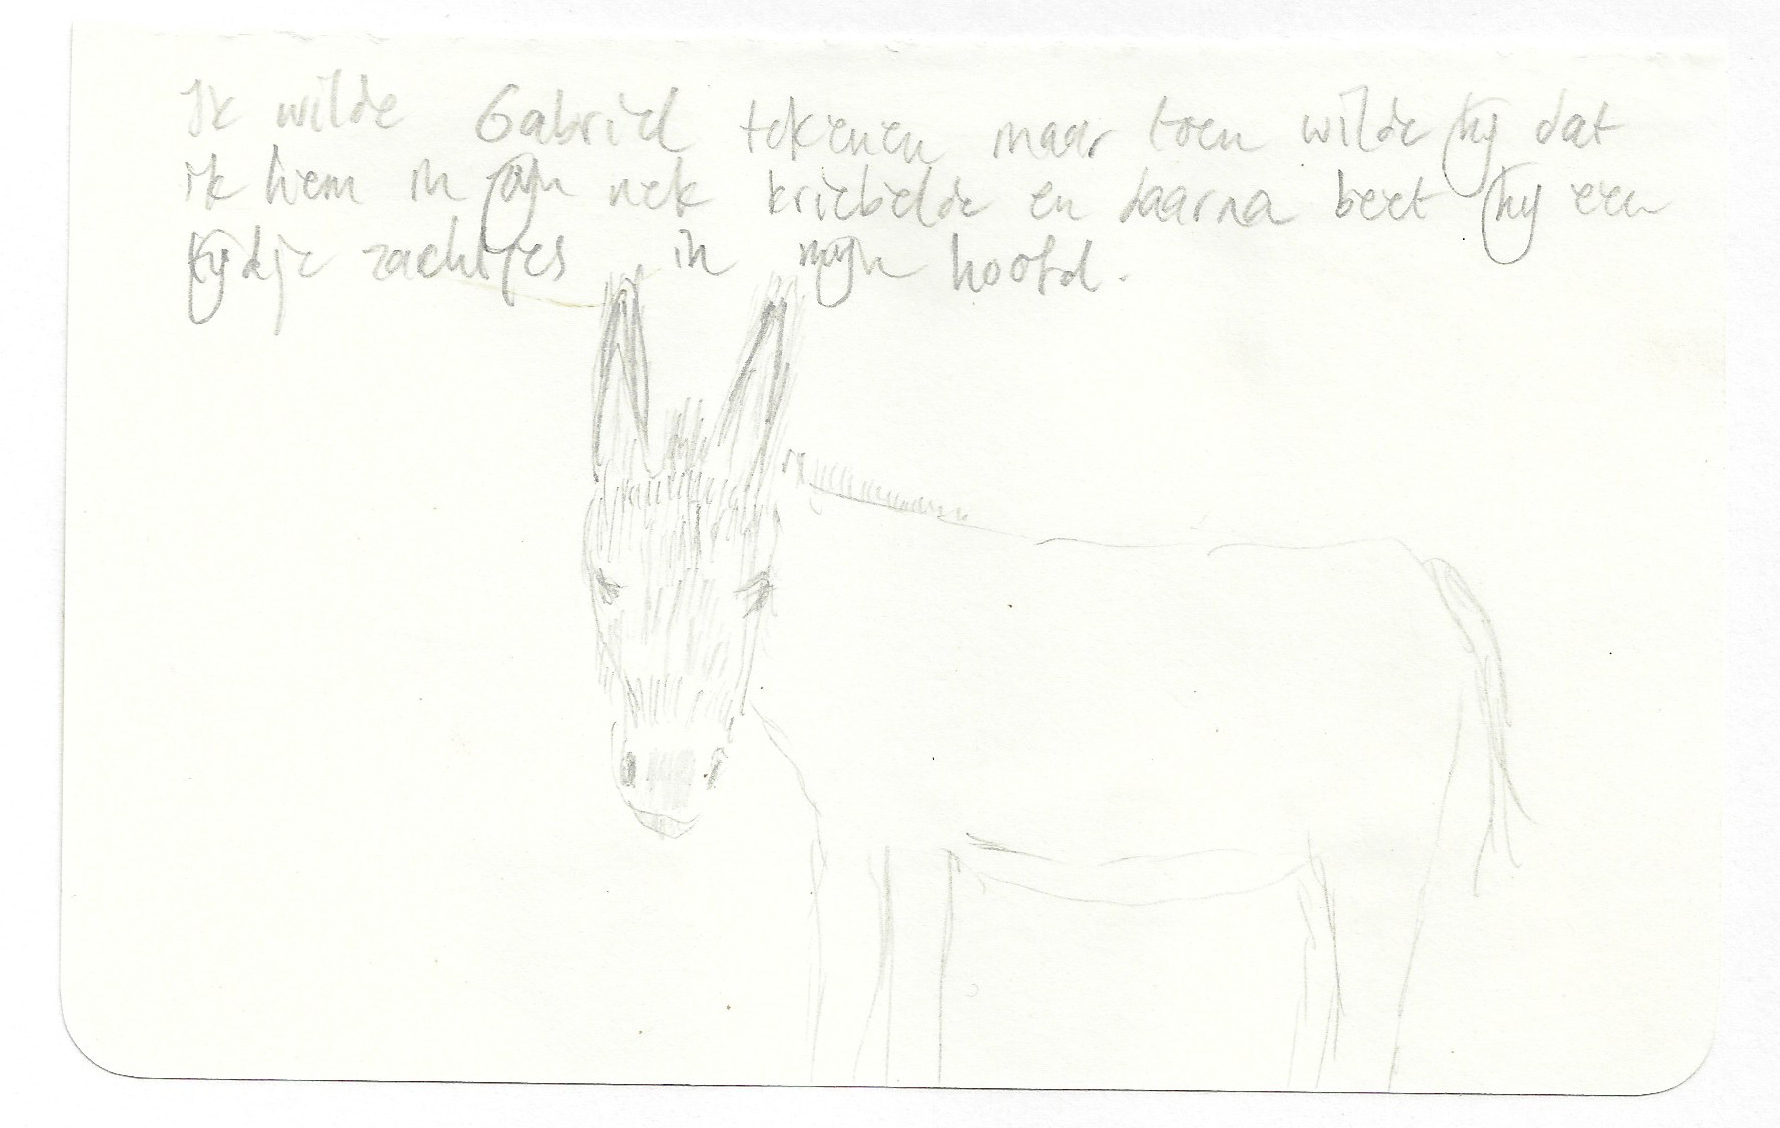 Ik wilde Gabriel tekenen maar toen wilde hij dat
ik hem in zijn nek kriebelde en daarna beet hij een
tijdje zachtjes in mijn hoofd.